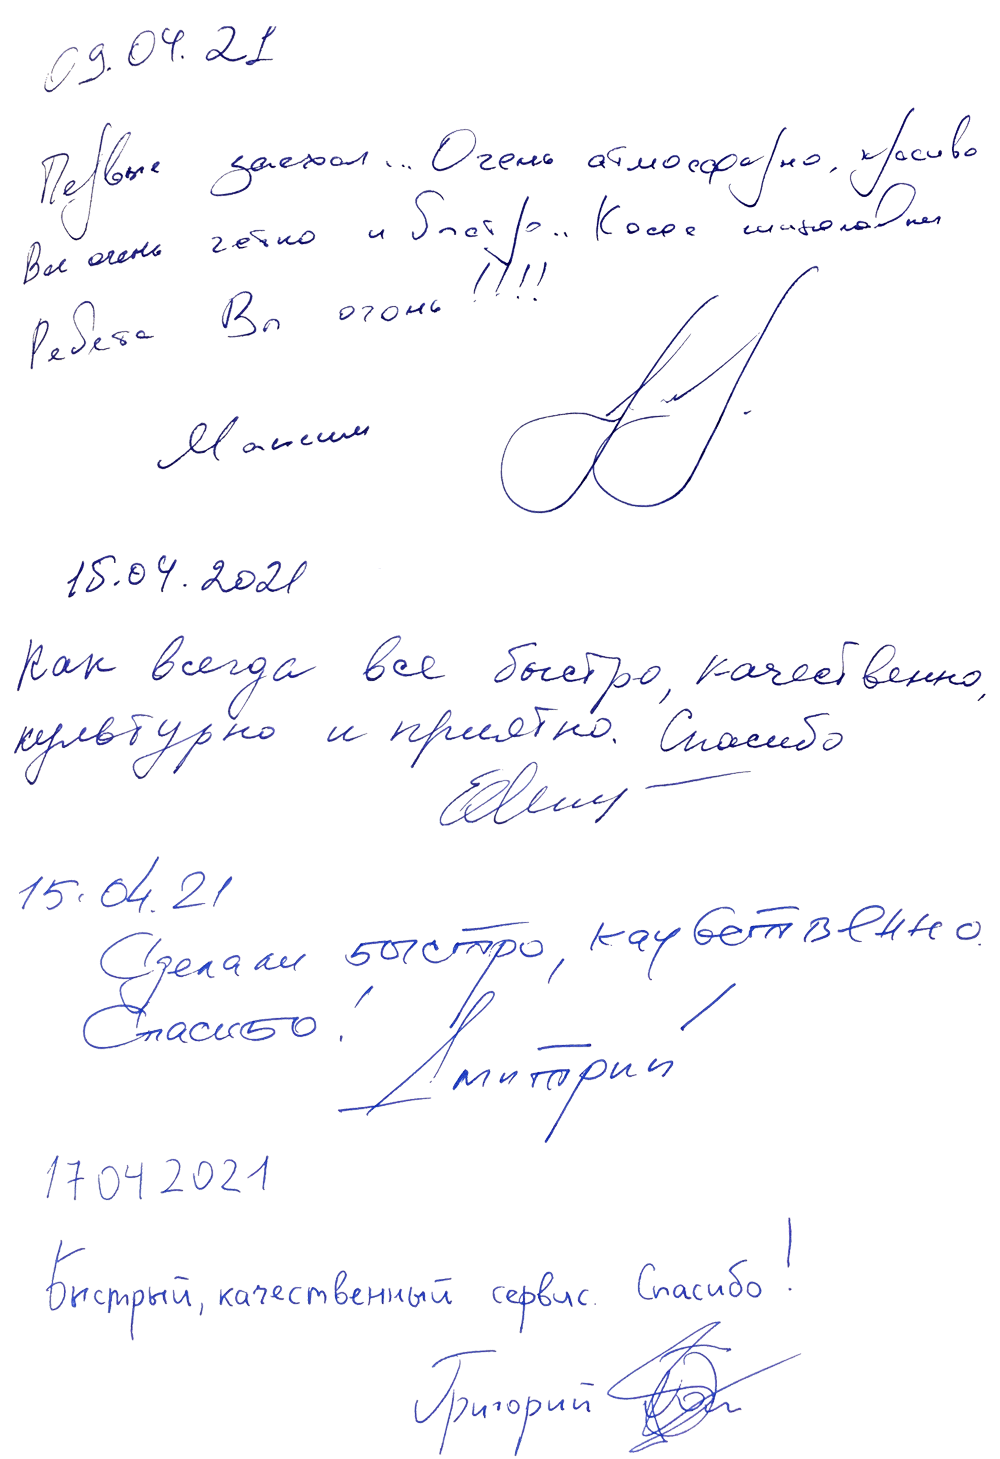 09.04.21
Первые заехал... Очень атмосферно, красиво
Все очень четко и быстро.. Кофе шиколадный
Ребята Вы огонь!!!!
Максим
15.04.2021
Как всегда все быстро, качественно,
культурно и приятно. Спасибо
15.04.21
Сделали быстро, качественно.
Спасибо!
Дмитрий
17042021
Быстрый, качественный сервис. Спасибо!
Григорий